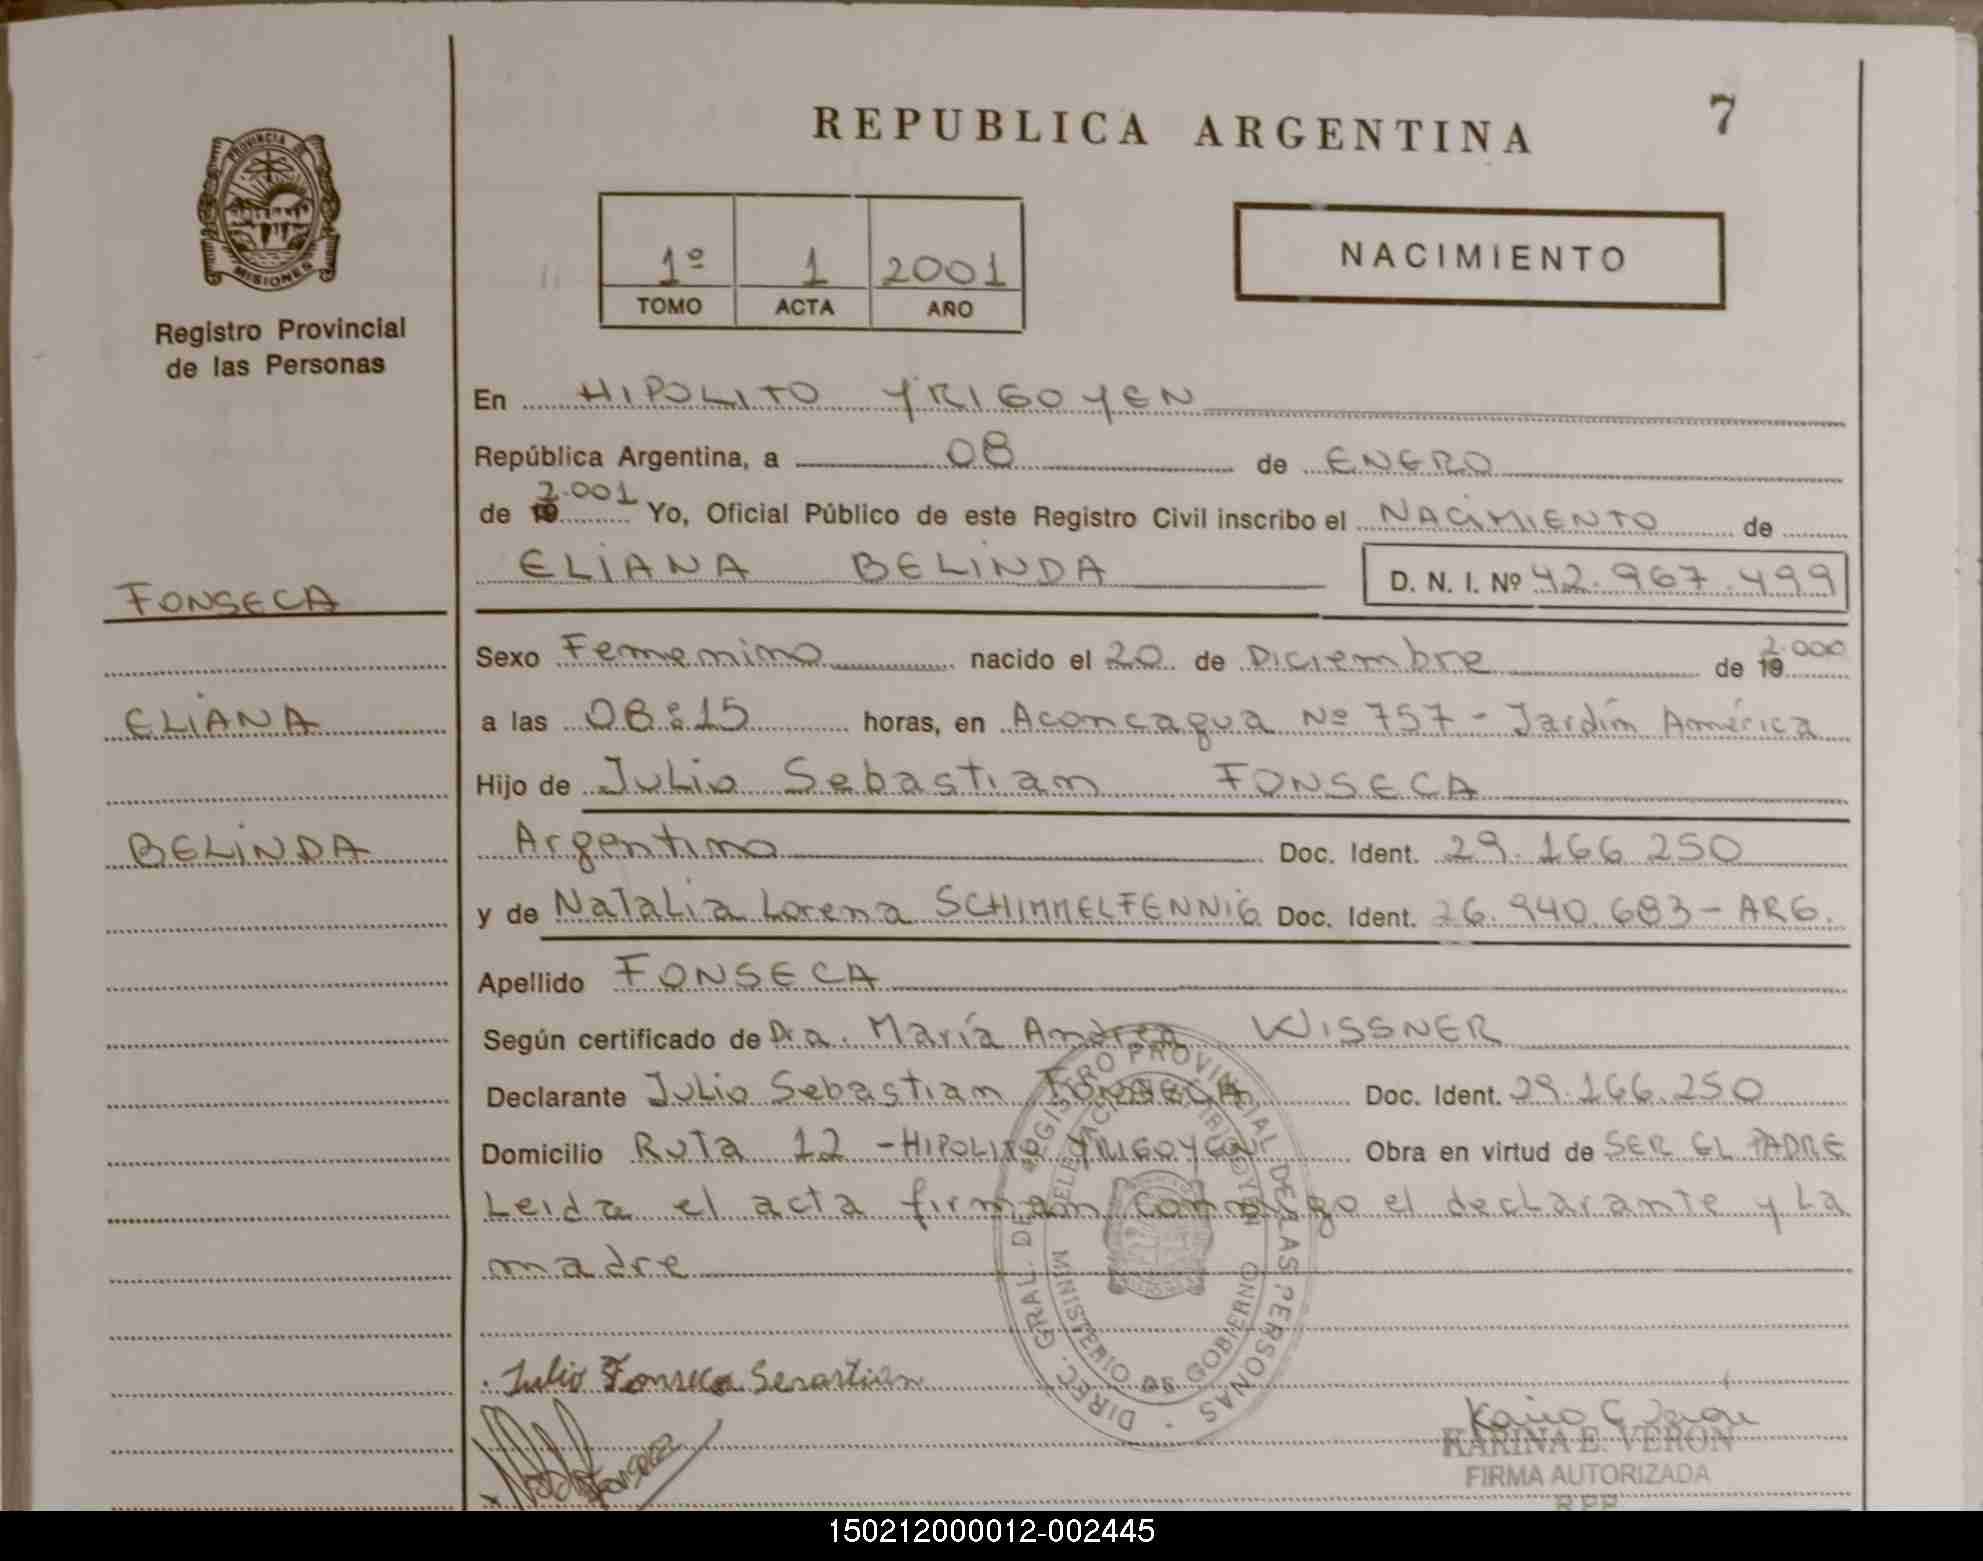 REPUBLICA ARGENTINA
7
PROVINCIA DE
MISIONES
Registro Provincial
de las Personas
1º 1 2001
TOMO ACTA AÑO
NACIMIENTO
En HIPOLITO YRIGOYEN
República Argentina, a 08 de ENERO
de 19 2.001 Yo, Oficial Público de este Registro Civil inscribo el NACIMIENTO de
ELIANA BELINDA D. N. I. Nº 42.967.499
FONSECA
Sexo Femenino nacido el 20 de Diciembre de 19 2.000
ELIANA
a las 08:15 horas, en Aconcagua Nº 757 - Jardín América
Hijo de Julio Sebastian FONSECA
BELINDA
Argentino Doc. Ident. 29.166.250
y de Natalia Lorena SCHIMMELFENNIG Doc. Ident. 26.940.683 - ARG.
Apellido FONSECA
Según certificado de Dra. María Andrea WISSNER
Declarante Julio Sebastian FONSECA Doc. Ident. 29.166.250
Domicilio Ruta 12 - HIPOLITO YRIGOYEN Obra en virtud de SER EL PADRE
Leida el acta firman conmigo el declarante y la
madre
DIREC. GRAL. DE REGISTRO PROVINCIAL DE LAS PERSONAS
MINISTERIO DE GOBIERNO
Julio Fonseca Sebastian
KARINA E. VERON
FIRMA AUTORIZADA
R.P.P.
150212000012-002445